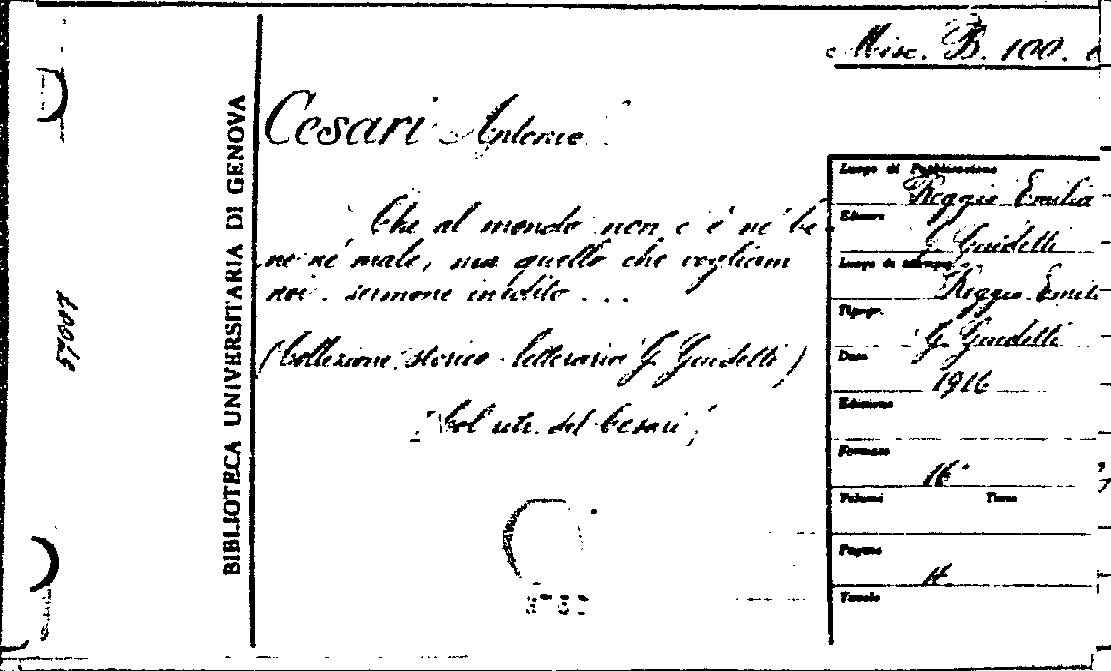 Misc. B. 100.
BIBLIOTECA UNIVERSITARIA DI GENOVA
57087
Cesari Antonio
Che al mondo non c è nè be
ne nè male, ma quello che vogliam
noi. sermone inedito ...
(Collezione storico-letteraria G. Guidetti)
[Col ritr. del Cesari]
Luogo di Pubblicazione
Reggio Emilia
Editore
G. Guidetti
Luogo di Stampa
Reggio Emili
Tipogr.
G. Guidetti
Data
1916
Edizione
Formato
16°
Volumi Tomo
Pagine
Tavole